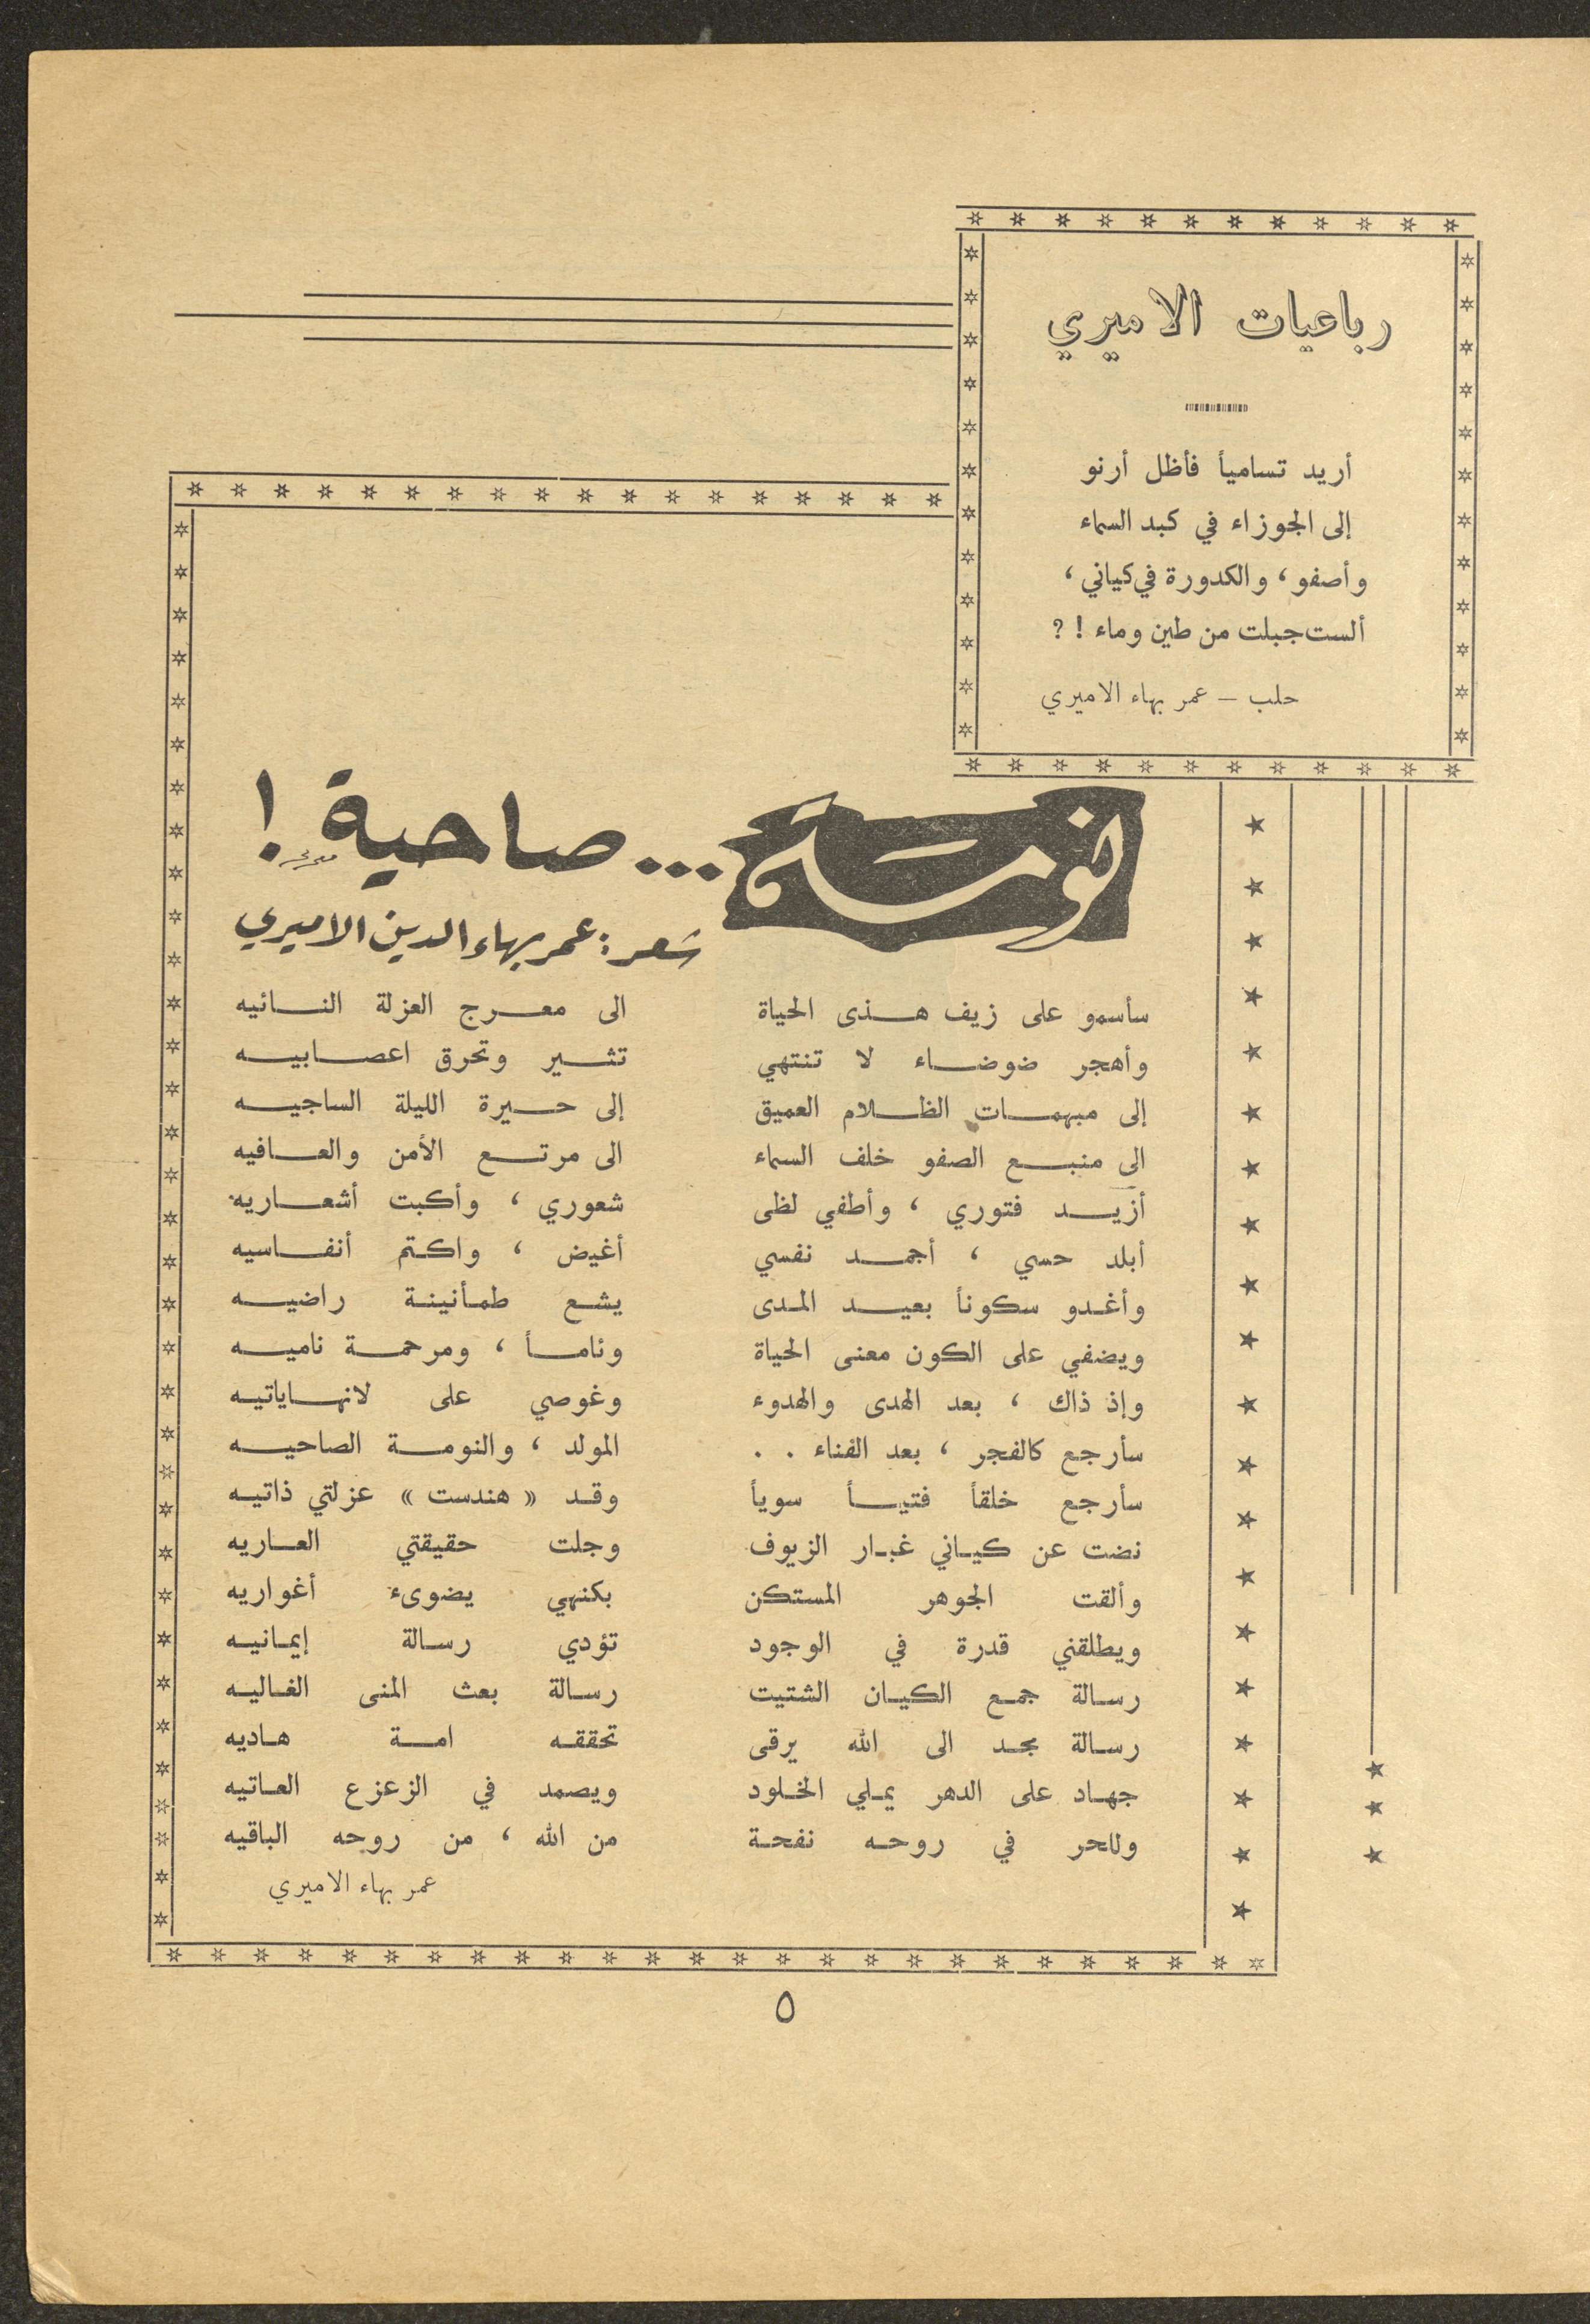 رباعيات الاميري
أريد تسامياً فأظل أرنو
إلى الجوزاء في كبد السماء
وأصفو، والكدورة في كياني،
ألست جبلت من طين وماء !؟
حلب – عمر بهاء الاميري
نومة ... صاحية !
شعر : عمر بهاء الدين الاميري
سأسمو على زيف هذى الحياة الى معرج العزلة النائيه
وأهجر ضوضاء لا تنتهي تثير وتحرق اعصابيه
إلى مبهمات الظلام العميق إلى حيرة الليلة الساجيه
الى منبع الصفو خلف السماء الى مرتع الأمن والعافيه
أزيد فتوري ، وأطفي لظى شعوري ، وأكبت أشعاريه
أبلد حسي ، أجمد نفسي أغيض ، واكتم أنفاسيه
وأغدو سكوناً بعيد المدى يشع طمأنينة راضيه
ويضفي على الكون معنى الحياة وئاماً ، ومرحمة ناميه
وإذ ذاك ، بعد الهدى والهدوء وغوصي على لانهاياتيه
سأرجع كالفجر ، بعد الفناء . . المولد ، والنومة الصاحيه
سأرجع خلقاً فتياً سوياً وقد « هندست » عزلتي ذاتيه
نضت عن كياني غبار الزيوف وجلت حقيقتي العاريه
وألقت الجوهر المستكن بكنهي يضوىء أغواريه
ويطلقني قدرة في الوجود تؤدي رسالة إيمانيه
رسالة جمع الكيان الشتيت رسالة بعث المنى الغاليه
رسالة مجد الى الله يرقى تحققه امة هاديه
جهاد على الدهر يملي الخلود ويصمد في الزعزع العاتيه
وللحر في روحه نفحة من الله ، من روحه الباقيه
عمر بهاء الاميري
٥